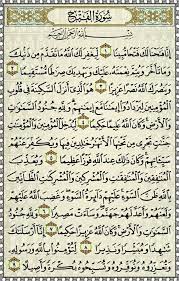 سُورَةُ الفَتْحِ
بِسْمِ ٱللَّهِ ٱلرَّحْمَٰنِ ٱلرَّحِيمِ
إِنَّا فَتَحْنَا لَكَ فَتْحًا مُّبِينًا ١ لِّيَغْفِرَ لَكَ ٱللَّهُ مَا تَقَدَّمَ مِن ذَنۢبِكَ
وَمَا تَأَخَّرَ وَيُتِمَّ نِعْمَتَهُۥ عَلَيْكَ وَيَهْدِيَكَ صِرَٰطًا مُّسْتَقِيمًا ٢
وَيَنصُرَكَ ٱللَّهُ نَصْرًا عَزِيزًا ٣ هُوَ ٱلَّذِىٓ أَنزَلَ ٱلسَّكِينَةَ فِى قُلُوبِ
ٱلْمُؤْمِنِينَ لِيَزْدَادُوٓا۟ إِيمَٰنًا مَّعَ إِيمَٰنِهِمْ وَلِلَّهِ جُنُودُ ٱلسَّمَٰوَٰتِ
وَٱلْأَرْضِ وَكَانَ ٱللَّهُ عَلِيمًا حَكِيمًا ٤ لِّيُدْخِلَ ٱلْمُؤْمِنِينَ وَٱلْمُؤْمِنَٰتِ
جَنَّٰتٍ تَجْرِى مِن تَحْتِهَا ٱلْأَنْهَٰرُ خَٰلِدِينَ فِيهَا وَيُكَفِّرَ عَنْهُمْ
سَيِّـَٔاتِهِمْ وَكَانَ ذَٰلِكَ عِندَ ٱللَّهِ فَوْزًا عَظِيمًا ٥ وَيُعَذِّبَ ٱلْمُنَٰفِقِينَ
وَٱلْمُنَٰفِقَٰتِ وَٱلْمُشْرِكِينَ وَٱلْمُشْرِكَٰتِ ٱلظَّآنِّينَ
بِٱللَّهِ ظَنَّ ٱلسَّوْءِ عَلَيْهِمْ دَآئِرَةُ ٱلسَّوْءِ وَغَضِبَ ٱللَّهُ عَلَيْهِمْ
وَلَعَنَهُمْ وَأَعَدَّ لَهُمْ جَهَنَّمَ وَسَآءَتْ مَصِيرًا ٦ وَلِلَّهِ جُنُودُ ٱلسَّمَٰوَٰتِ
وَٱلْأَرْضِ وَكَانَ ٱللَّهُ عَزِيزًا حَكِيمًا ٧ إِنَّآ أَرْسَلْنَٰكَ
شَٰهِدًا وَمُبَشِّرًا وَنَذِيرًا ٨ لِّتُؤْمِنُوا۟ بِٱللَّهِ وَرَسُولِهِۦ
وَتُعَزِّرُوهُ وَتُوَقِّرُوهُ وَتُسَبِّحُوهُ بُكْرَةً وَأَصِيلًا ٩